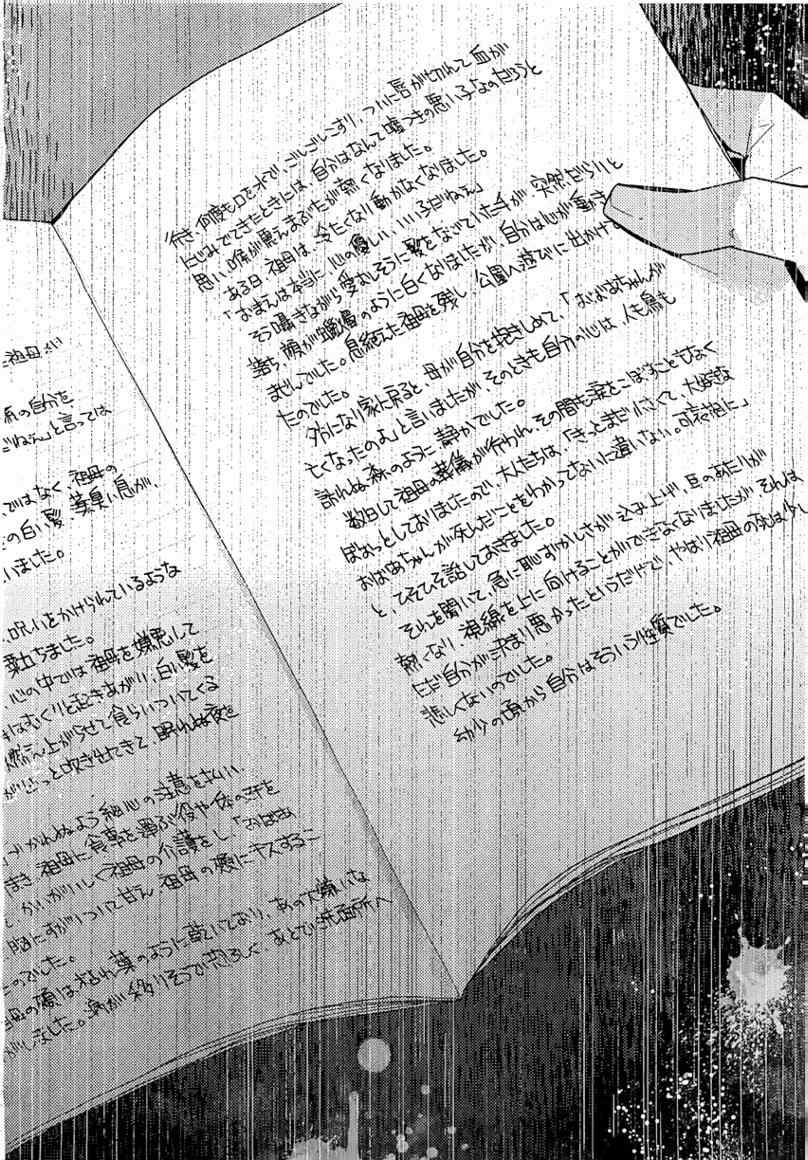 祖母
病の自分を
だねえ」と言っては
ではなく、祖母の
の白い髪、薬臭い息が、
いました。
、呪いをかけられているような
粟立ちました。
、心の中では祖母を嫌悪して
はむくりと起きあがり、白い髪を
燃え上がらせて食らいついてくる
がふっと吹きせれてきて、眠れぬ夜を
づかれぬよう細心の注意を払い、
まき、祖母に食事を運ぶ役や体の汗を
と、かいがいしく祖母の介護をし、「おばあ
、胸にすがりついて甘え、祖母の頬にキスするこ
たのでした。
祖母の頬は枯れ葉のように乾いており、あの大嫌いな
がしました。病が移りそうで恐ろしく、あとで洗面所へ
行き、何度も口を水で、ごしごしこすり、ついに唇が切れて血が
にじみでてきたときには、自分はなんて嘘つきの悪い子なのだろうと
思い、喉が震えまぶたが熱くなりました。
ある日、祖母は、冷たくなり動かなくなりました。
「おまえは本当に、心の優しい、いい子だねえ」
そう囁きながら愛おしそうに髪をなでていた手が、突然だらりと
落ち、顔が蝋燭のように白くなりましたが、自分は心が動き
ませんでした。息絶えた祖母を残し、公園へ遊びに出かけ
たのでした。
夕方になり家に戻ると、母が自分を抱きしめて、「おばあちゃんが
亡くなったのよ」と言いましたが、そのときも自分の心は、人も鳥も
訪れぬ森のように静かでした。
数日して祖母の葬儀が行われ、その間も涙をこぼすこともなく
ぼぉっとしておりましたので、大人たちは、「きっとまだ小さくて、大好きな
おばあちゃんが死んだことをわかってないに違いない。可哀相に」
と、ひそひそ話しておきました。
それを聞いて、急に恥ずかしさが込み上げ、耳のあたりが
熱くなり、視線を上に向けることができなくなりましたが、それは
ただ自分が決まり悪かったというだけで、やはり祖母の死は少し
悲しくないのでした。
幼少の頃から自分はそういう性質でした。